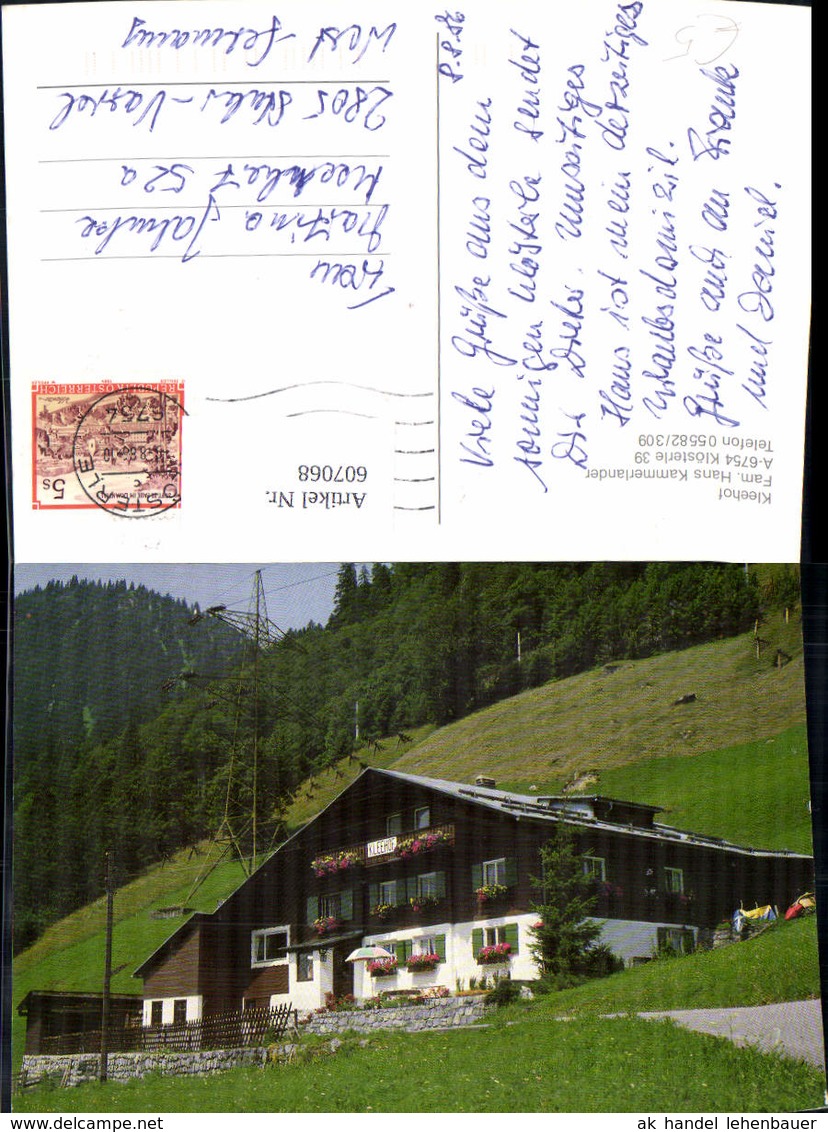 8.8.86
Viele Grüße aus dem
sonnigen Klösterle sendet
Dir Dieter. Umseitiges
Haus ist mein derzeitiges
Urlaubsdomizil.
Grüße auch an Frank
und Daniel.
Frau
Martina
52a
2805 Stuhr-Varrel
West-Germany
REPUBLIK ÖSTERREICH
5 S
6754
KLÖSTERLE
Artikel Nr.
607068
Kleehof
Fam. Hans Kammerlander
A-6754 Klösterle 39
Telefon 05582/309
KLEEHOF
ak handel lehenbauer